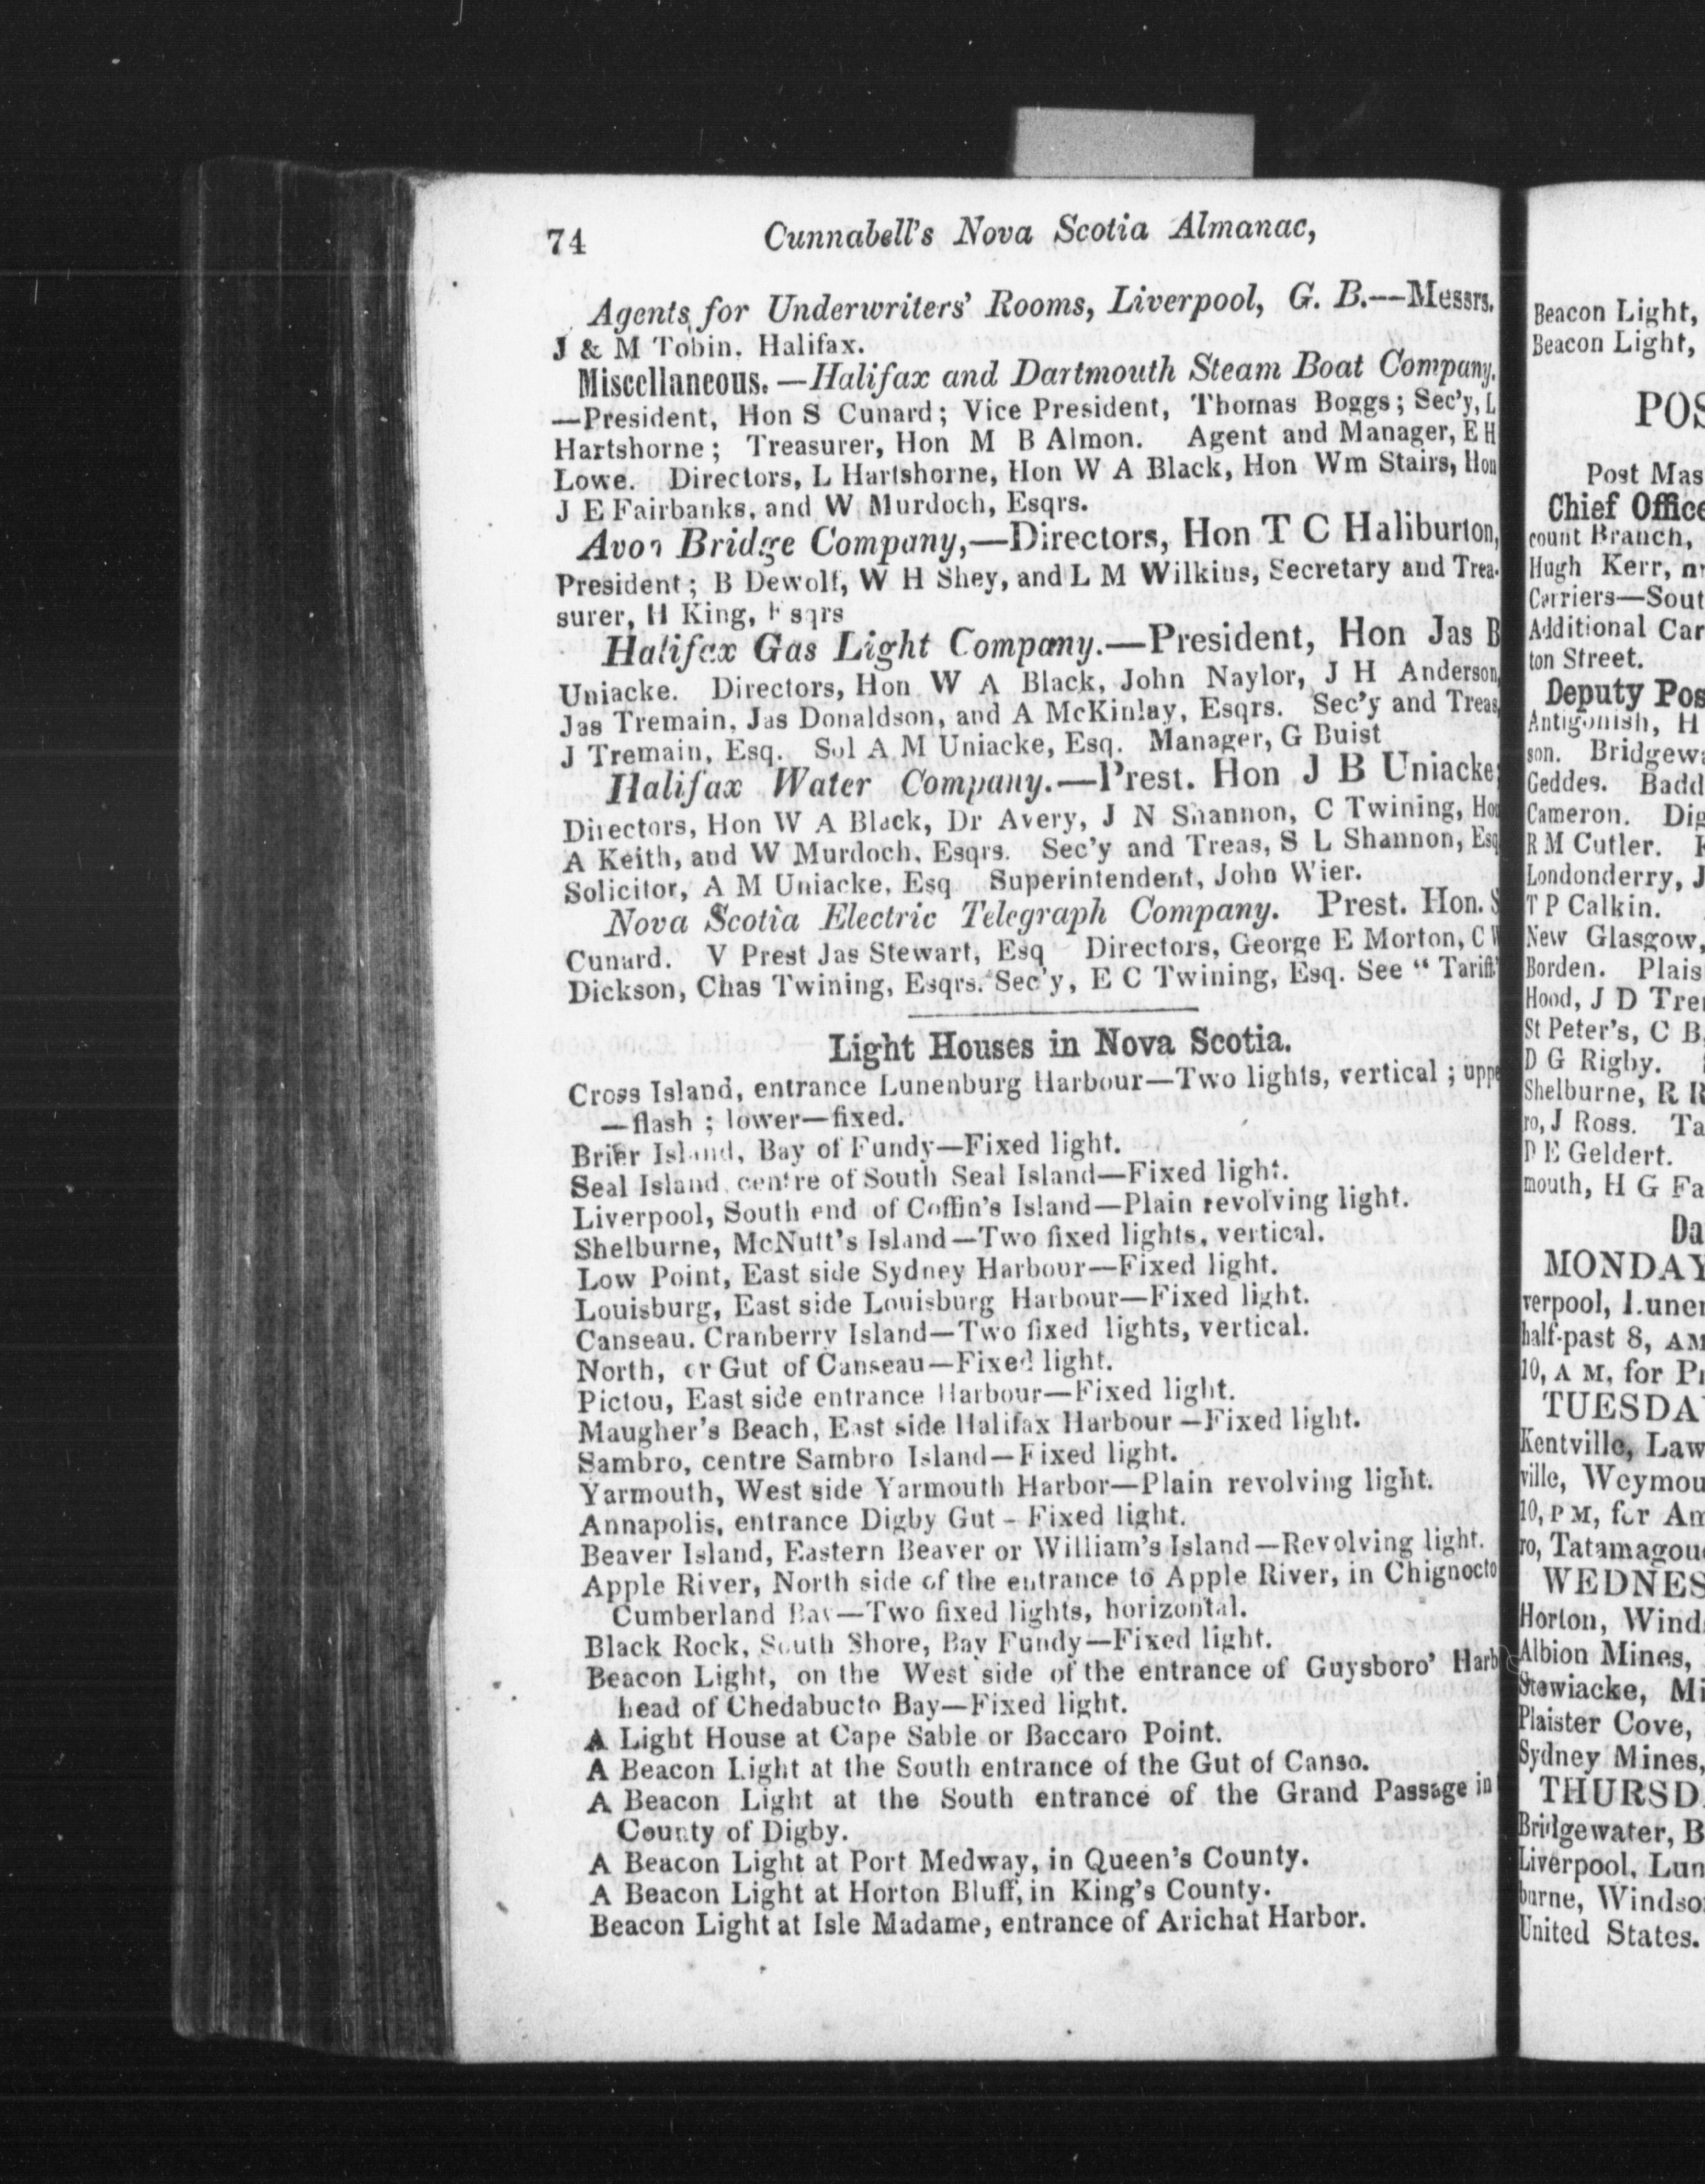 74 Cunnabell's Nova Scotia Almanac,
Agents for Underwriters' Rooms, Liverpool, G. B.—Messrs.
J & M Tobin, Halifax.
Miscellaneous.—Halifax and Dartmouth Steam Boat Company.
—President, Hon S Cunard; Vice President, Thomas Boggs; Sec'y, L
Hartshorne; Treasurer, Hon M B Almon. Agent and Manager, E H
Lowe. Directors, L Hartshorne, Hon W A Black, Hon Wm Stairs, Hon
J E Fairbanks, and W Murdoch, Esqrs.
Avon Bridge Company,—Directors, Hon T C Haliburton,
President; B Dewolf, W H Shey, and L M Wilkins, Secretary and Trea-
surer, H King, Esqrs
Halifax Gas Light Company.—President, Hon Jas B
Uniacke. Directors, Hon W A Black, John Naylor, J H Anderson,
Jas Tremain, Jas Donaldson, and A McKinlay, Esqrs. Sec'y and Treas,
J Tremain, Esq. Sol A M Uniacke, Esq. Manager, G Buist
Halifax Water Company.—Prest. Hon J B Uniacke;
Directors, Hon W A Black, Dr Avery, J N Shannon, C Twining, Hon
A Keith, and W Murdoch, Esqrs. Sec'y and Treas, S L Shannon, Esq
Solicitor, A M Uniacke, Esq Superintendent, John Wier.
Nova Scotia Electric Telegraph Company. Prest. Hon. S
Cunard. V Prest Jas Stewart, Esq Directors, George E Morton, C W
Dickson, Chas Twining, Esqrs. Sec'y, E C Twining, Esq. See "Tariff"
Light Houses in Nova Scotia.
Cross Island, entrance Lunenburg Harbour—Two lights, vertical; uppe
—flash; lower—fixed.
Brier Island, Bay of Fundy—Fixed light.
Seal Island centre of South Seal Island—Fixed light.
Liverpool, South end of Coffin's Island—Plain revolving light.
Shelburne, McNutt's Island—Two fixed lights, vertical.
Low Point, East side Sydney Harbour—Fixed light.
Louisburg, East side Louisburg Harbour—Fixed light.
Canseau. Cranberry Island—Two fixed lights, vertical.
North, or Gut of Canseau—Fixed light.
Pictou, East side entrance Harbour—Fixed light.
Maugher's Beach, East side Halifax Harbour—Fixed light.
Sambro, centre Sambro Island—Fixed light.
Yarmouth, West side Yarmouth Harbor—Plain revolving light.
Annapolis, entrance Digby Gut—Fixed light.
Beaver Island, Eastern Beaver or William's Island—Revolving light.
Apple River, North side of the entrance to Apple River, in Chignocto
Cumberland Bay—Two fixed lights, horizontal.
Black Rock, South Shore, Bay Fundy—Fixed light.
Beacon Light, on the West side of the entrance of Guysboro' Harb
head of Chedabucto Bay—Fixed light.
A Light House at Cape Sable or Baccaro Point.
A Beacon Light at the South entrance of the Gut of Canso.
A Beacon Light at the South entrance of the Grand Passage in
County of Digby.
A Beacon Light at Port Medway, in Queen's County.
A Beacon Light at Horton Bluff, in King's County.
Beacon Light at Isle Madame, entrance of Arichat Harbor.
Beacon Light,
Beacon Light,
POS
Post Mas
Chief Office
count Branch,
Hugh Kerr,
Carriers—Sout
Additional Car
ton Street.
Deputy Pos
Antigonish, H
son. Bridgewa
Geddes. Badd
Cameron. Dig
R M Cutler.
Londonderry, J
T P Calkin.
New Glasgow,
Borden. Plais
Hood, J D Tre
St Peter's, C B,
D G Rigby.
Shelburne, R R
ro, J Ross. Ta
D E Geldert.
mouth, H G Fa
Da
MONDAY
verpool, Lunen
half-past 8, AM
10, A M, for Pi
TUESDA
Kentville, Law
ville, Weymou
10, P M, for Am
ro, Tatamagou
WEDNES
Horton, Wind
Albion Mines,
Stewiacke, Mi
Plaister Cove,
Sydney Mines,
THURSD
Bridgewater, B
Liverpool, Lun
burne, Windso
United States.